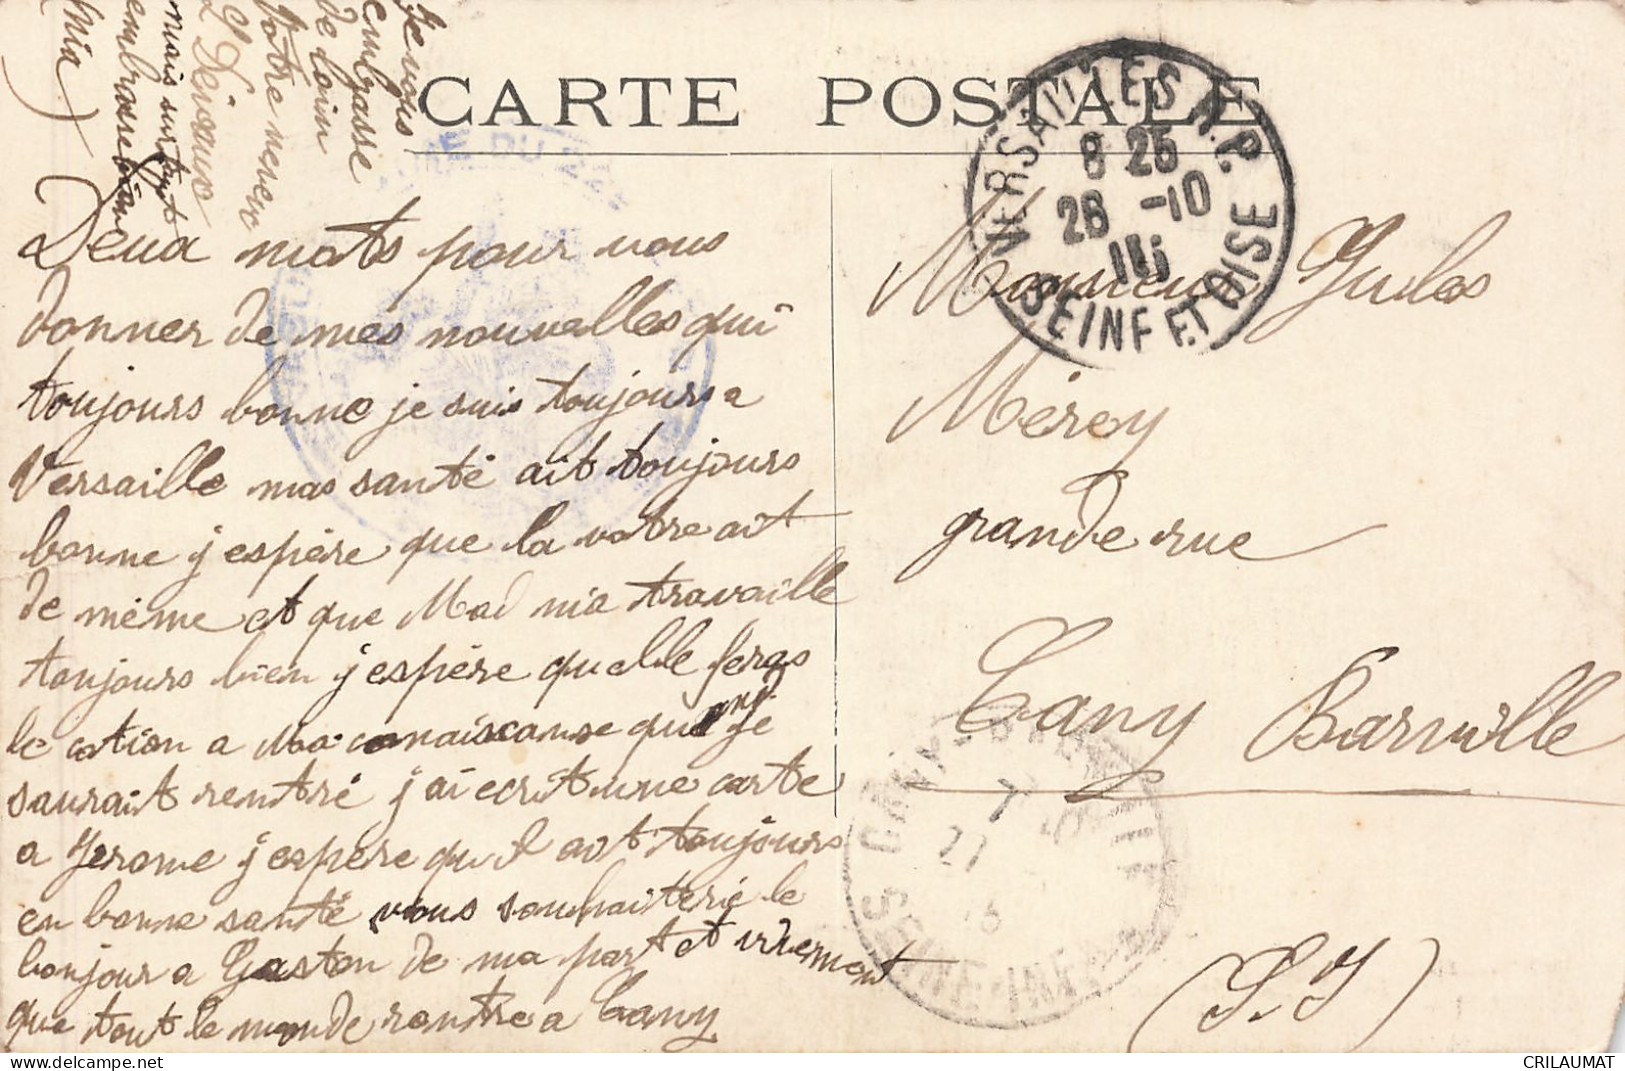 CARTE POSTALE
VERSAILLES R.P.
8 25
26 -10
SEINE ET OISE
Deux mots pour vous
donner de mes nouvelles qui
toujours bonne je suis toujours a
Versaille mas santé ait toujours
bonne j'espère que la votre ait
de même et que Mad nia travaille
toujours bien j'espère quelle feras
le cotion a Ma conaiscanse quand je
saurait rentré j'ai ecrit une carte
a Jerome j'espère qu'il ait toujours
en bonne santé vous souhaiterié le
bonjour a Gaston de ma part et
que tout le monde rentre a Cany
Je vous
embrasse
de loin
Votre neveu
mais surtout
embrassé bien
Nia
Monsieur Jules
Mérey
grande rue
Cany Barville
(S. I)
CANY-BARVILLE
27
SEINE-INF
CRILAUMAT